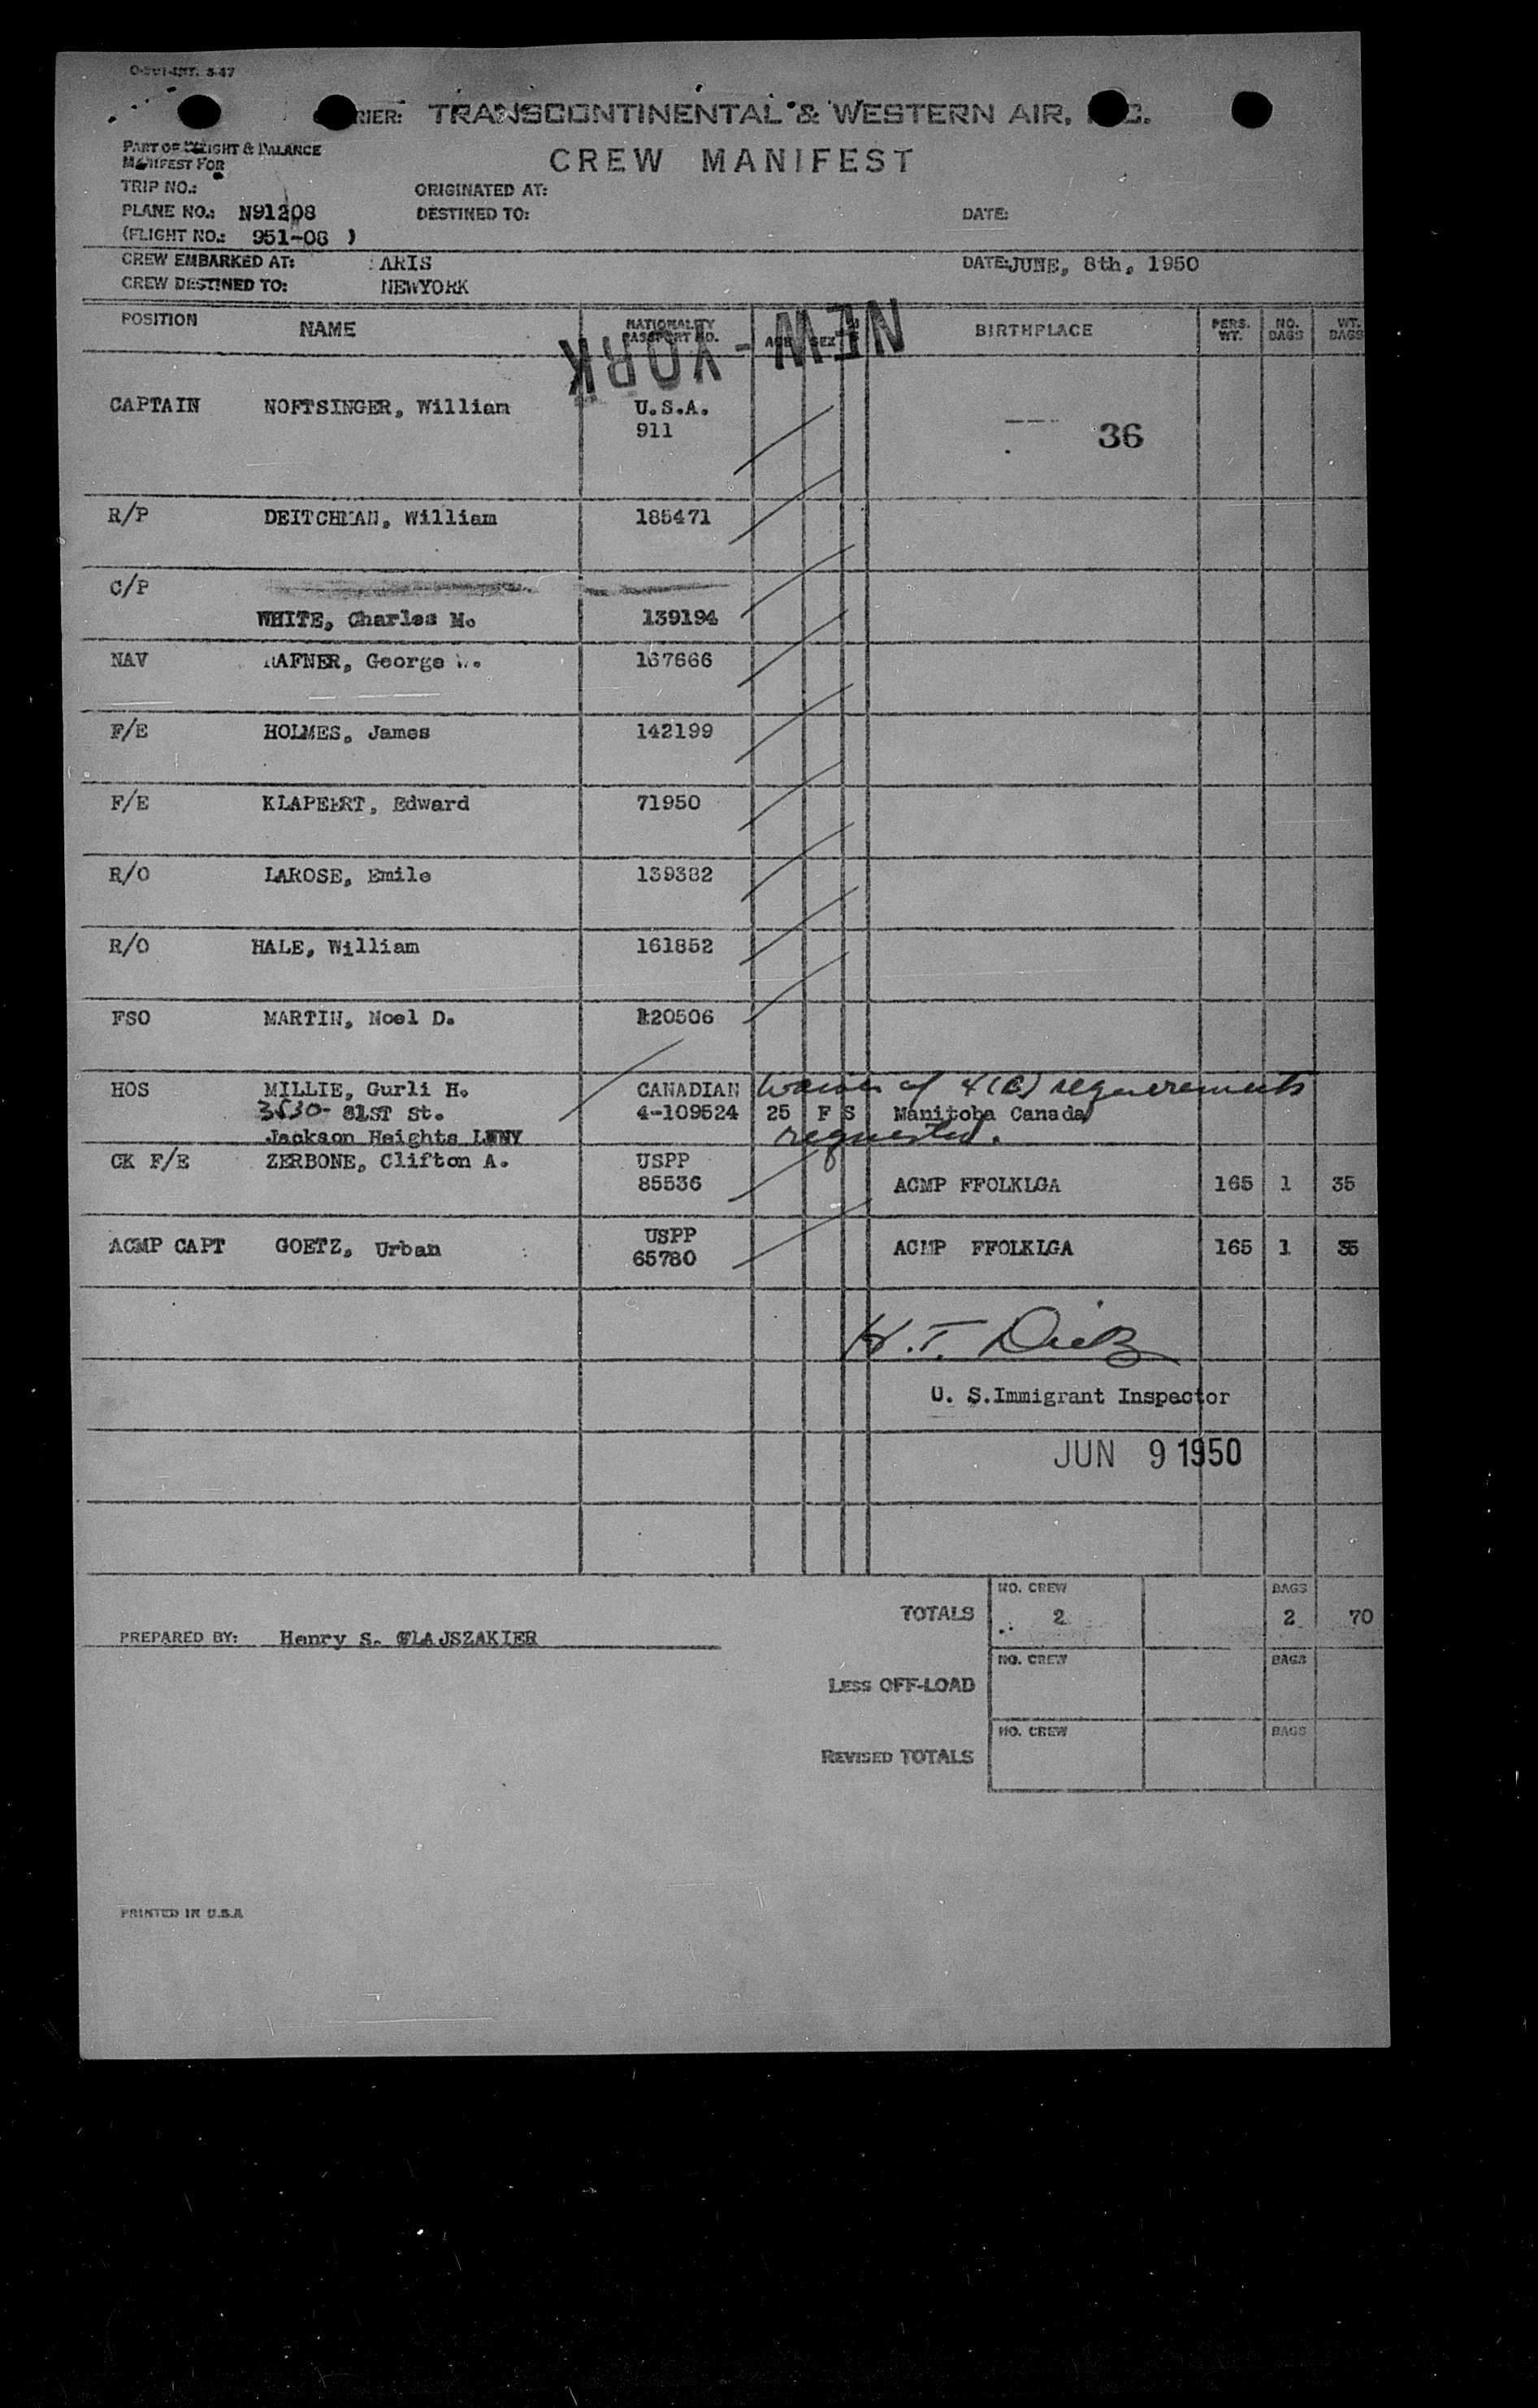 TRANSCONTINENTAL & WESTERN AIR,
CREW MANIFEST
PART OF WEIGHT & BALANCE
MANIFEST FOR
TRIP NO.: ORIGINATED AT:
PLANE NO.: N91208 DESTINED TO: DATE:
(FLIGHT NO.: 951-08 )
CREW EMBARKED AT: ARIS DATE: JUNE, 8th, 1950
CREW DESTINED TO: NEWYORK
NEW-YORK
POSITION NAME NATIONALITY PASSPORT NO. AGE SEX BIRTHPLACE PERS. WT. NO. BAGS WT. BAGS
CAPTAIN NOFTSINGER, William U.S.A.
911 36
R/P DEITCHMAN, William 185471
C/P
WHITE, Charles M. 139194
NAV RAFNER, George W. 167666
F/E HOLMES, James 142199
F/E KLAPEERT, Edward 71950
R/O LAROSE, Emile 139382
R/O HALE, William 161852
FSO MARTIN, Noel D. 120506
HOS MILLIE, Gurli H. CANADIAN Waiver of 4(B) requirements
3530- 81ST St. 4-109524 25 F S Manitoba Canada
Jackson Heights LINY requested.
CK F/E ZERBONE, Clifton A. USPP
85536 ACMP FFOLKLGA 165 1 35
ACMP CAPT GOETZ, Urban USPP
65780 ACMP FFOLKLGA 165 1 35
H.T. Dietz
U. S.Immigrant Inspector
JUN 9 1950
NO. CREW BAGS
TOTALS 2 2 70
PREPARED BY: Henry S. GLAJSZAKIER
NO. CREW BAGS
LESS OFF-LOAD
NO. CREW BAGS
REVISED TOTALS
PRINTED IN U.S.A